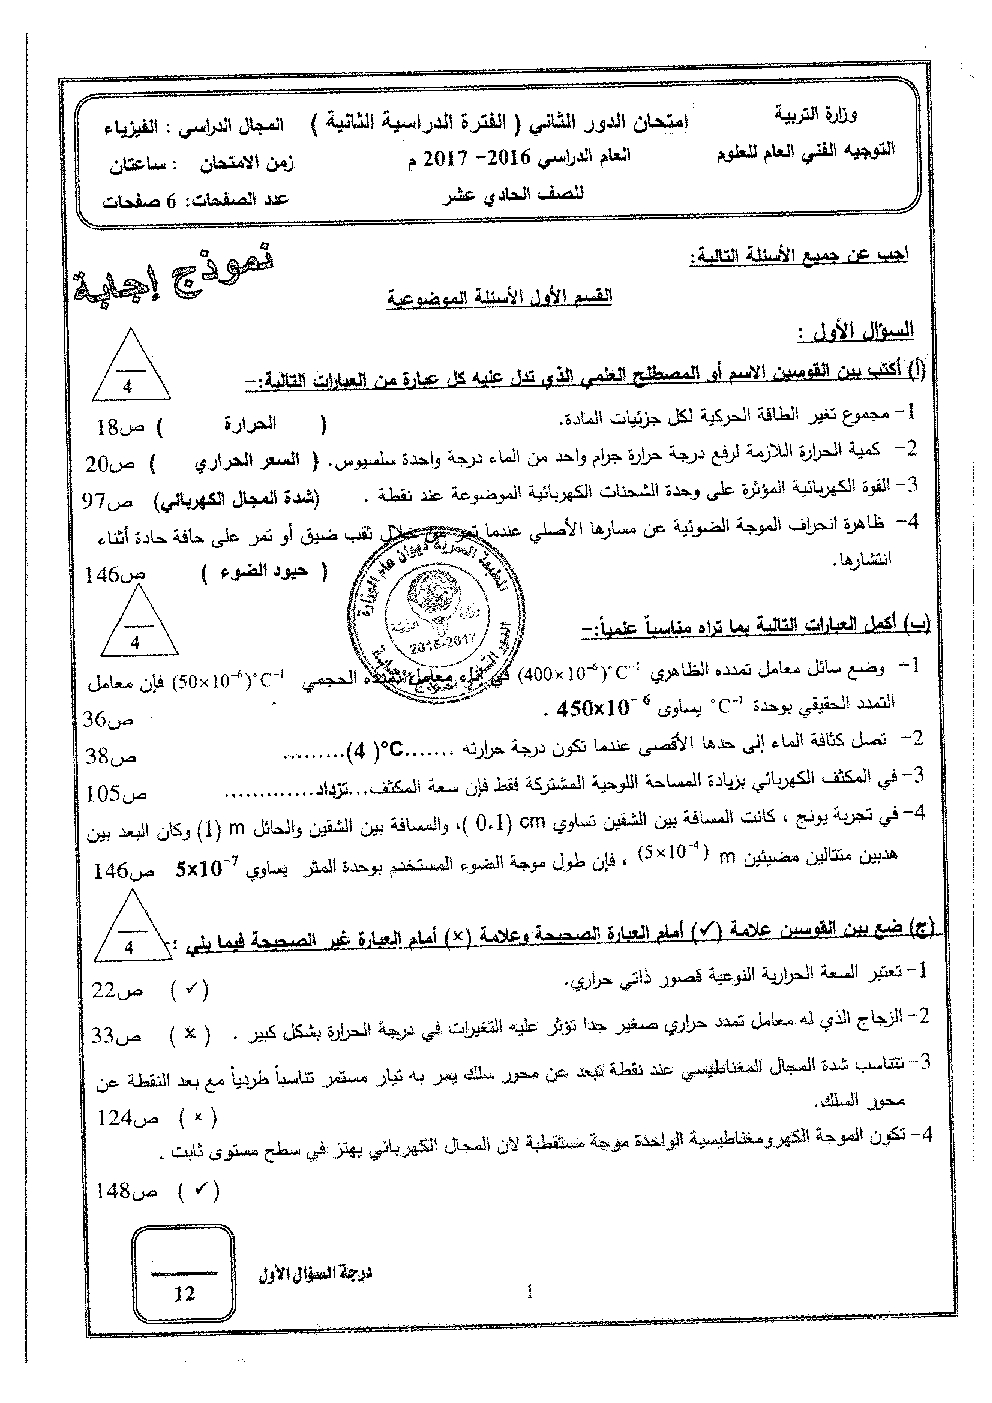 وزارة التربية
التوجيه الفني العام للعلوم
امتحان الدور الثاني ( الفترة الدراسية الثانية )
العام الدراسي 2016- 2017 م
للصف الحادي عشر
المجال الدراسي : الفيزياء
زمن الامتحان : ساعتان
عدد الصفحات: 6 صفحات
نموذج إجابة
اجب عن جميع الأسئلة التالية:
القسم الأول الأسئلة الموضوعية
السؤال الأول :
4
(أ) أكتب بين القوسين الاسم أو المصطلح العلمي الذي تدل عليه كل عبارة من العبارات التالية:-
1- مجموع تغير الطاقة الحركية لكل جزئيات المادة. ( الحرارة ) ص18
2- كمية الحرارة اللازمة لرفع درجة حرارة جرام واحد من الماء درجة واحدة سلسيوس. ( السعر الحراري ) ص20
3- القوة الكهربائية المؤثرة على وحدة الشحنات الكهربائية الموضوعة عند نقطة . (شدة المجال الكهربائي) ص97
4- ظاهرة انحراف الموجة الضوئية عن مسارها الأصلي عندما تمر من خلال ثقب ضيق أو تمر على حافة حادة أثناء
انتشارها. ( حيود الضوء ) ص146
4
(ب) أكمل العبارات التالية بما تراه مناسباً علمياً:-
1- وضع سائل معامل تمدده الظاهري (400×10⁻⁶)°C⁻¹ في إناء معامل تمدده الحجمي (50×10⁻⁶)°C⁻¹ فإن معامل
التمدد الحقيقي بوحدة °C⁻¹ يساوى 450x10⁻⁶ . ص36
2- تصل كثافة الماء إلى حدها الأقصى عندما تكون درجة حرارته .......°C (4)......... ص38
3- في المكثف الكهربائي بزيادة المساحة اللوحية المشتركة فقط فإن سعة المكثف....تزداد............. ص105
4- في تجربة يونج ، كانت المسافة بين الشقين تساوي cm (0.1 )، والمسافة بين الشقين والحائل m (1) وكان البعد بين
هدبين متتالين مضيئين m (5×10⁻⁴) ، فإن طول موجة الضوء المستخدم بوحدة المتر يساوي 5x10⁻⁷ ص146
4
(ج) ضع بين القوسين علامة (✓) أمام العبارة الصحيحة وعلامة (×) أمام العبارة غير الصحيحة فيما يلي :
1- تعتبر السعة الحرارية النوعية قصور ذاتي حراري. (✓) ص22
2- الزجاج الذي له معامل تمدد حراري صغير جدا تؤثر عليه التغيرات في درجة الحرارة بشكل كبير . ( × ) ص33
3- تتناسب شدة المجال المغناطيسي عند نقطة تبعد عن محور سلك يمر به تيار مستمر تناسباً طردياً مع بعد النقطة عن
محور السلك. ( × ) ص124
4- تكون الموجة الكهرومغناطيسية الواحدة موجة مستقطبة لان المجال الكهربائي يهتز في سطح مستوى ثابت .
(✓) ص148
درجة السؤال الأول
12
1